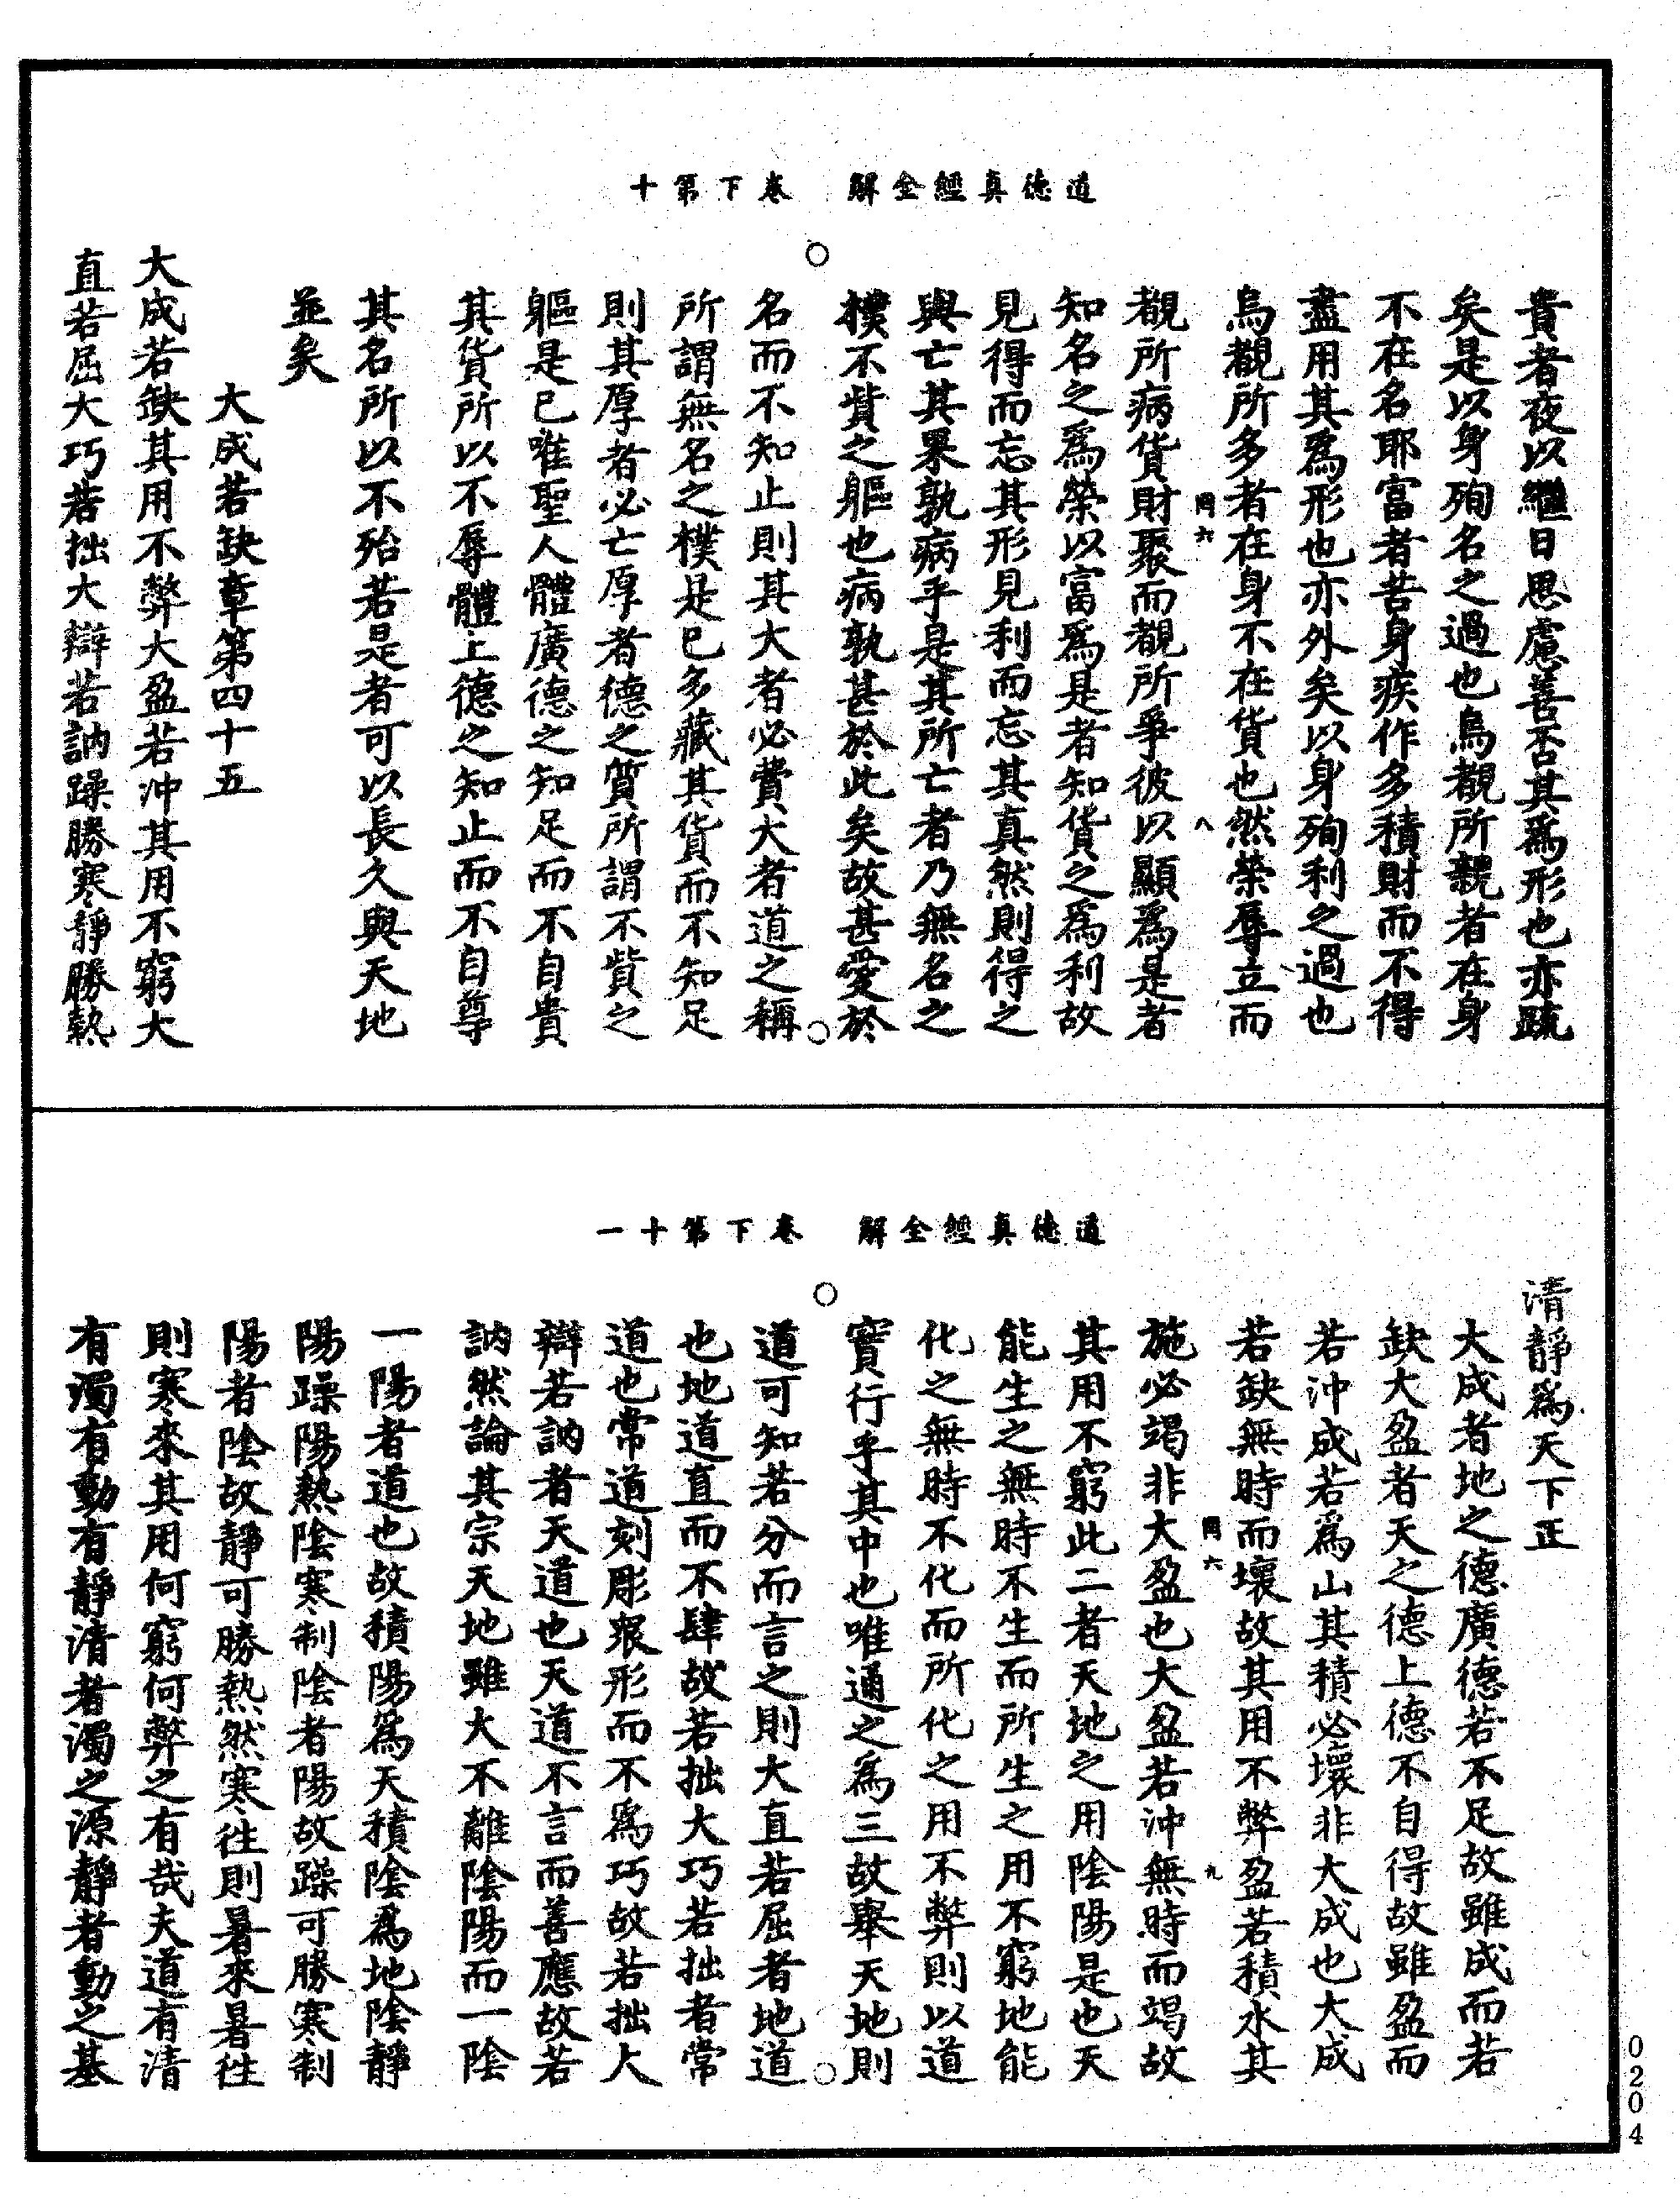 道德真經全解　卷下第十
貴者夜以繼日思慮善否其爲形也亦疏
矣是以身殉名之過也烏覩所親者在身
不在名耶富者苦身疾作多積財而不得
盡用其爲形也亦外矣以身殉利之過也
烏覩所多者在身不在貨也然榮辱立而
罔六　八
覩所病貨財聚而覩所爭彼以顯爲是者
知名之爲榮以富爲是者知貨之爲利故
見得而忘其形見利而忘其真然則得之
與亡其果孰病乎是其所亡者乃無名之
樸不貲之軀也病孰甚於此矣故甚愛於
名而不知止則其大者必費大者道之稱
所謂無名之樸是已多藏其貨而不知足
則其厚者必亡厚者德之質所謂不貲之
軀是已唯聖人體廣德之知足而不自貴
其貨所以不辱體上德之知止而不自尊
其名所以不殆若是者可以長久與天地
並矣
大成若缺章第四十五
大成若缺其用不弊大盈若沖其用不窮大
直若屈大巧若拙大辯若訥躁勝寒靜勝熱
道德真經全解　卷下第十一
清靜爲天下正
大成者地之德廣德若不足故雖成而若
缺大盈者天之德上德不自得故雖盈而
若沖成若爲山其積必壞非大成也大成
若缺無時而壞故其用不弊盈若積水其
罔六　九
施必竭非大盈也大盈若沖無時而竭故
其用不窮此二者天地之用陰陽是也天
能生之無時不生而所生之用不窮地能
化之無時不化而所化之用不弊則以道
寶行乎其中也唯通之爲三故舉天地則
道可知若分而言之則大直若屈者地道
也地道直而不肆故若拙大巧若拙者常
道也常道刻彫衆形而不爲巧故若拙大
辯若訥者天道也天道不言而善應故若
訥然論其宗天地雖大不離陰陽而一陰
一陽者道也故積陽爲天積陰爲地陰靜
陽躁陽熱陰寒制陰者陽故躁可勝寒制
陽者陰故靜可勝熱然寒往則暑來暑往
則寒來其用何窮何弊之有哉夫道有清
有濁有動有靜清者濁之源靜者動之基
0204